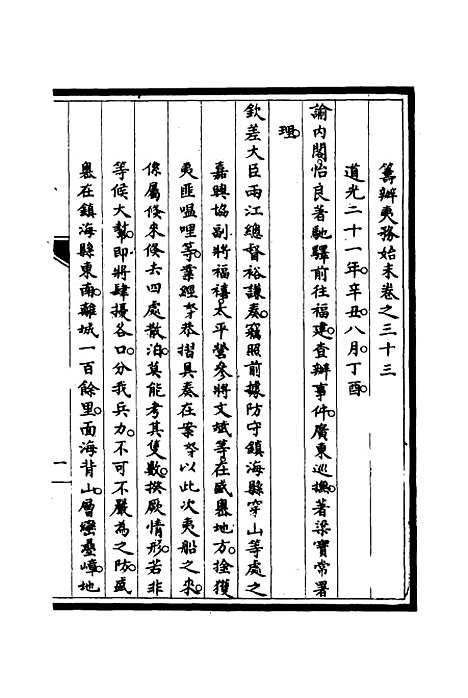 籌辦夷務始末卷之三十三
道光二十一年辛丑八月丁酉
諭内閣怡良著馳驛前往福建查辦事件廣東巡撫著梁寶常署
理
欽差大臣兩江總督裕謙奏竊照前據防守鎮海縣穿山等處之
嘉興協副將福禧太平營參將文斌等在盛嶴地方拴獲
夷匪嗢哩等業經奴才恭摺具奏在案奴才以此次夷船之來
係屬倐來倐去四處散泊莫能考其隻數揆厥情形若非
等候大幫即將肆擾各口分我兵力不可不嚴為之防盛
嶴在鎮海縣東南離城一百餘里面海背山層巒疊嶂地
一